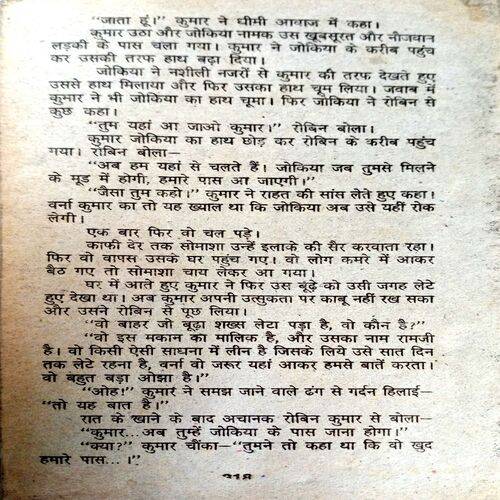 "जाता हूं।" कुमार ने धीमी आवाज में कहा।
कुमार उठा और जोकिया नामक उस खूबसूरत और नौजवान
लड़की के पास चला गया। कुमार ने जोकिया के करीब पहुंच
कर उसकी तरफ हाथ बढ़ा दिया।
जोकिया ने नशीली नजरों से कुमार की तरफ देखते हुए
उससे हाथ मिलाया और फिर उसका हाथ चूम लिया। जवाब में
कुमार ने भी जोकिया का हाथ चूमा। फिर जोकिया ने रोबिन से
कुछ कहा।
"तुम यहां आ जाओ कुमार।" रोबिन बोला।
कुमार जोकिया का हाथ छोड़ कर रोबिन के करीब पहुंच
गया। रोबिन बोला—
"अब हम यहां से चलते हैं। जोकिया जब तुमसे मिलने
के मूड में होगी, हमारे पास आ जाएगी।"
"जैसा तुम कहो।" कुमार ने राहत की सांस लेते हुए कहा।
वर्ना कुमार का तो यह ख्याल था कि जोकिया अब उसे यहीं रोक
लेगी।
एक बार फिर वो चल पड़े।
काफी देर तक सोमाशा उन्हें इलाके की सैर करवाता रहा।
फिर वो वापस उसके घर पहुंच गए। वो लोग कमरे में आकर
बैठ गए तो सोमाशा चाय लेकर आ गया।
घर में आते हुए कुमार ने फिर उस बूढ़े को उसी जगह लेटे
हुए देखा था। अब कुमार अपनी उत्सुकता पर काबू नहीं रख सका
और उसने रोबिन से पूछ लिया।
"वो बाहर जो बूढ़ा शख्स लेटा पड़ा है, वो कौन है?"
"वो इस मकान का मालिक है, और उसका नाम रामजी
है। वो किसी ऐसी साधना में लीन है जिसके लिये उसे सात दिन
तक लेटे रहना है, वर्ना वो जरूर यहां आकर हमसे बातें करता।
वो बहुत बड़ा ओझा है।"
"ओह!" कुमार ने समझ जाने वाले ढंग से गर्दन हिलाई—
"तो यह बात है।"
रात के खाने के बाद अचानक रोबिन कुमार से बोला—
"कुमार...अब तुम्हें जोकिया के पास जाना होगा।"
"क्या?" कुमार चौंका—"तुमने तो कहा था कि वो खुद
हमारे पास...।"